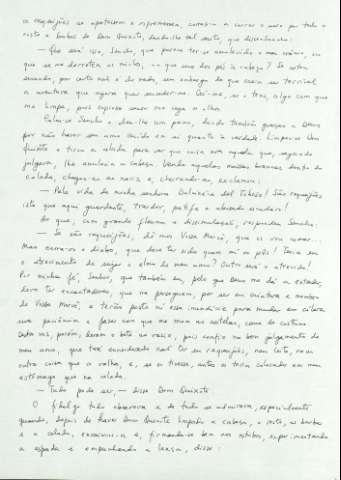 os requeijões se apertassem e espremessem, começou a correr o soro por todo o
rosto e barbas de Dom Quixote, dando-lhe tal susto, que disse a Sancho:
— Que será isto, Sancho, que parece ter-se amolecido o meu crânio, ou
que se me derretem os miolos, ou que suo dos pés à cabeça? Se estou
suando, por certo não é de medo, sem embargo de que creio ser terrível
a aventura que agora quer suceder-me. Dá-me, se o tens, algo com que
me limpe, pois copioso suor me cega os olhos.
Calou-se Sancho e deu-lhe um pano, dando também graças a Deus
por não haver seu amo caído em si quanto à verdade. Limpou-se Dom
Quixote e tirou a celada para ver que coisa era aquela que, segundo
julgava, lhe esfriava a cabeça. Vendo aquelas massas brancas dentro da
celada, chegou-as ao nariz e, cheirando-as, exclamou:
— Pela vida de minha senhora Dulcineia del Toboso! São requeijões
isto que aqui guardaste, traidor, patife e abusado escudeiro!
Ao que, com grande fleuma e dissimulação, respondeu Sancho:
— Se são requeijões, dê-mos Vossa Mercê, que os vou comer...
Mas coma-os o diabo, que deve ter sido quem aí os pôs! Teria eu
o atrevimento de sujar o elmo de meu amo? Outro será o atrevido!
Por minha fé, Senhor, que também eu, pelo que Deus me dá a entender,
devo ter encantadores, que me perseguem, por ser eu criatura e membro
de Vossa Mercê, e terão posto aí essa imundície para mudar em cólera
sua paciência e fazer com que me moa as costelas, como de costume.
Desta vez, porém, deram o bote em vazio, pois confio no bom julgamento de
meu amo, que terá considerado não ter eu requeijões, nem leite, nem
outra coisa que o valha, e, se os tivesse, antes os teria colocado em meu
estômago que na celada.
— Tudo pode ser, — disse Dom Quixote.
O fidalgo tudo observava e de tudo se admirava, especialmente
quando, depois de haver Dom Quixote limpado a cabeça, o rosto, as barbas
e a celada, encaixou-a e, firmando-se bem nos estribos, experimentando
a espada e empunhando a lança, disse: